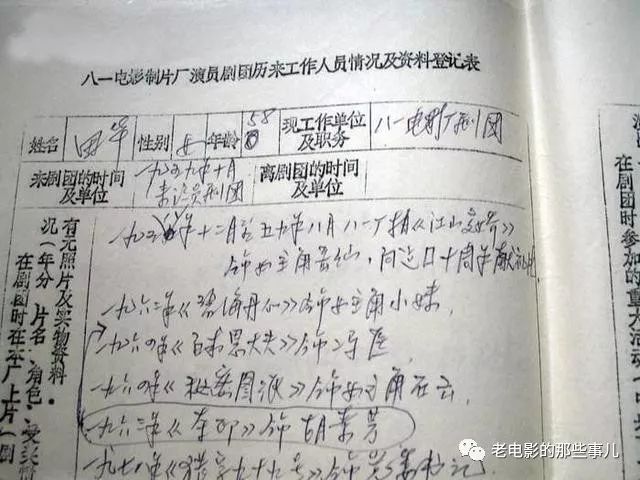 八一电影制片厂演员剧团历来工作人员情况及资料登记表
姓名 田华 性别 女 年龄 58 现工作单位及职务 八一电影厂剧团
来剧团的时间及单位 一九五九年十月 来演员剧团 离剧团的时间及单位
有无照片及实物资料
况(年分 片名 角色 受奖情
在剧团时在本厂上片(剧
年十二月至五九年八月八一厂拍《江山多娇》
饰女主角岳仙,
一九六二年《碧海丹心》饰女主角小妹,
一九六四年《白求恩大夫》饰冯医
一九六四年《秘密图纸》饰女主角石云,
一九六三年《夺印》饰胡素芳
一九七八年《猎字九十九号》饰 书记
在剧团时参加的重大活动(
老电影的那些事儿